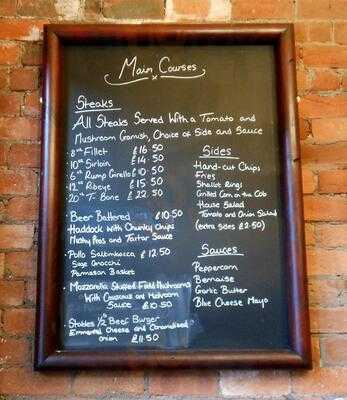 Main Courses
Steaks
All Steaks Served With a Tomato and
Mushroom Garnish, Choice of Side and Sauce
8oz Fillet £16.50
10oz Sirloin £14.50
6oz Rump £10.50
12oz Ribeye £15.50
20oz T-Bone £22.50
Beer Battered £10.50
Haddock with Chunky Chips
Mushy Peas and Tartar Sauce
Pollo Saltimbocca £12.50
Sage Gnocchi
Parmesan Basket
Mozzarella Stuffed Field Mushrooms
With Couscous and Mushroom
Sauce £10.50
Stokies ½lb Beer Burger
Emmental Cheese and Caramalised
onion £11.50
Sides
Hand-cut Chips
Fries
Shallot Rings
Grilled Corn on the Cob
House Salad
Tomato and Onion Salad
(extra sides £2.50)
Sauces
Peppercorn
Bernaise
Garlic Butter
Blue Cheese Mayo